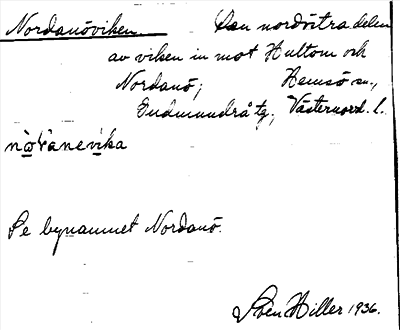 Nordanöviken. Den nordöstra delen
av viken in mot Hultom och
Nordanö; Hemsö sn.,
Gudmundrå tg., Västernorrl. l.
nọ̀ŕanevika
Se bynamnet Nordanö.
Sven Hiller 1936.